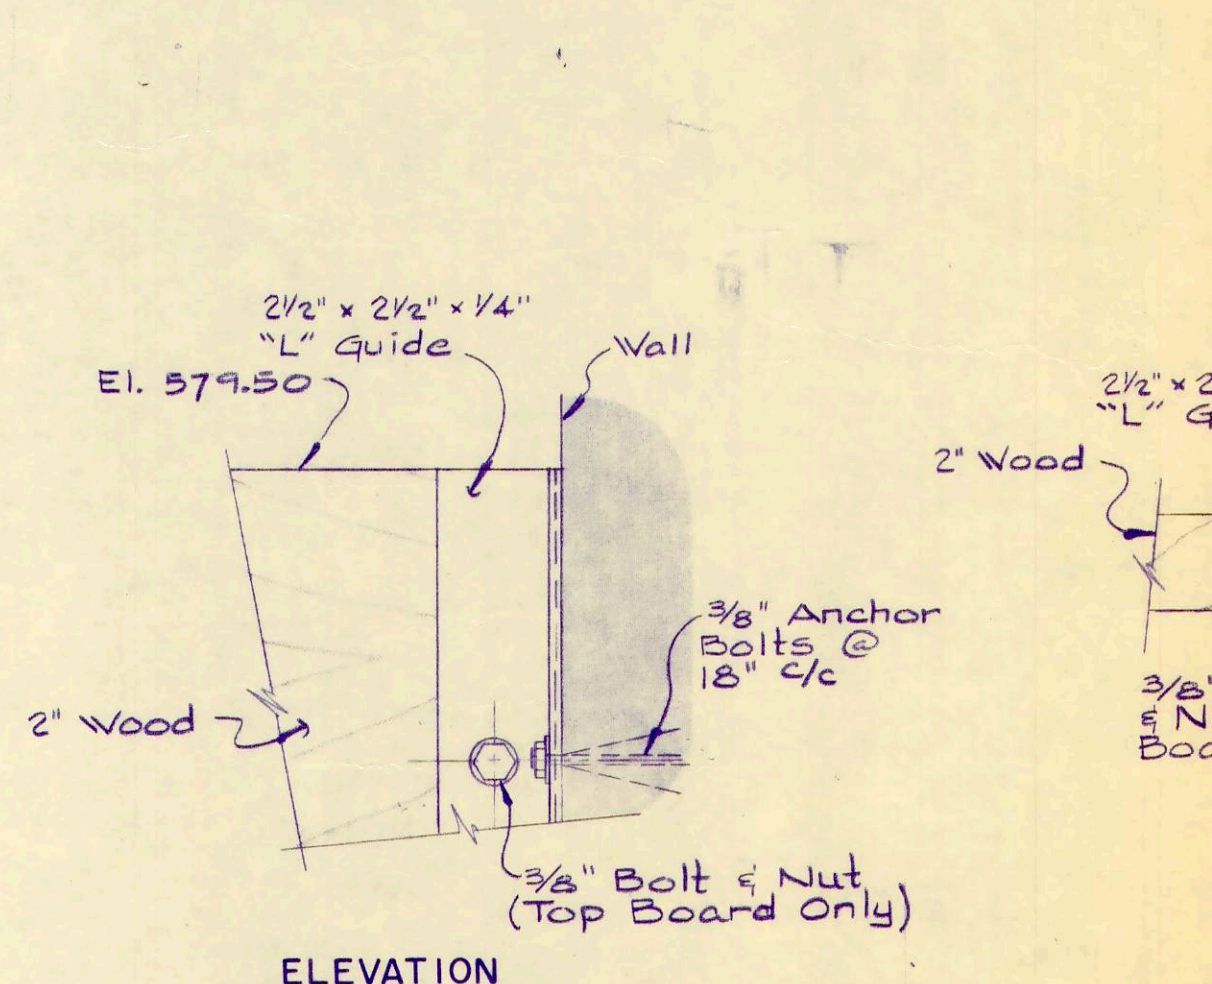 2½" x 2½" x ¼"
"L" Guide
Wall
El. 579.50
2" Wood
3/8" Anchor
Bolts @
18" c/c
3/8" Bolt & Nut
(Top Board Only)
ELEVATION
2½" x 2
"L" G
2" Wood
3/8"
& N
Boa